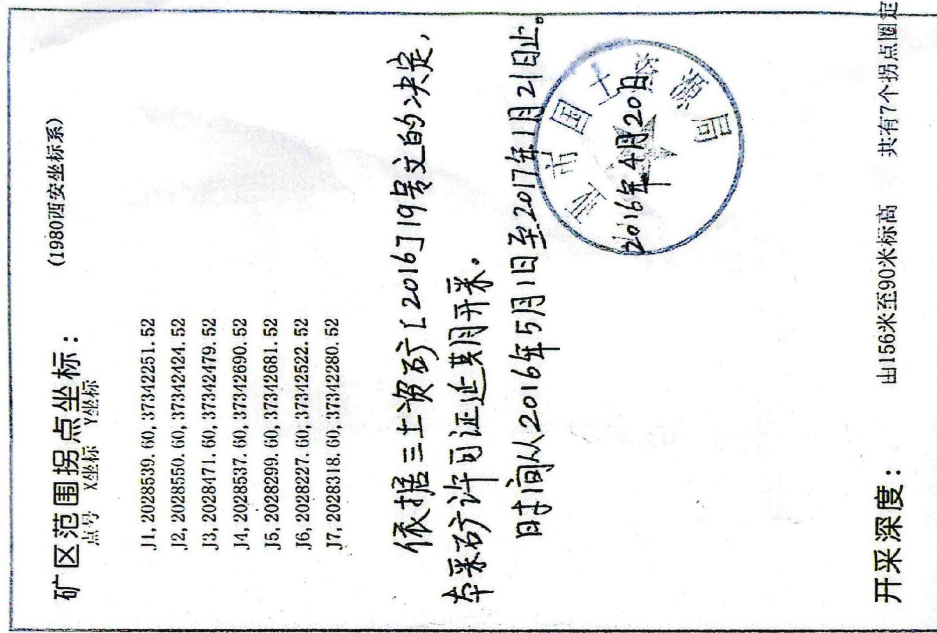 矿区范围拐点坐标：
(1980西安坐标系)
点号 X坐标 Y坐标
J1, 2028539.60, 37342251.52
J2, 2028550.60, 37342424.52
J3, 2028471.60, 37342479.52
J4, 2028537.60, 37342690.52
J5, 2028299.60, 37342681.52
J6, 2028227.60, 37342522.52
J7, 2028318.60, 37342280.52
依据三土资矿[2016]19号文的决定，
本采矿许可证延期开采。
时间从2016年5月1日至2017年1月21日止。
亚市国土资源局
2016年4月20日
开采深度：
由156米至90米标高 共有7个拐点圈定